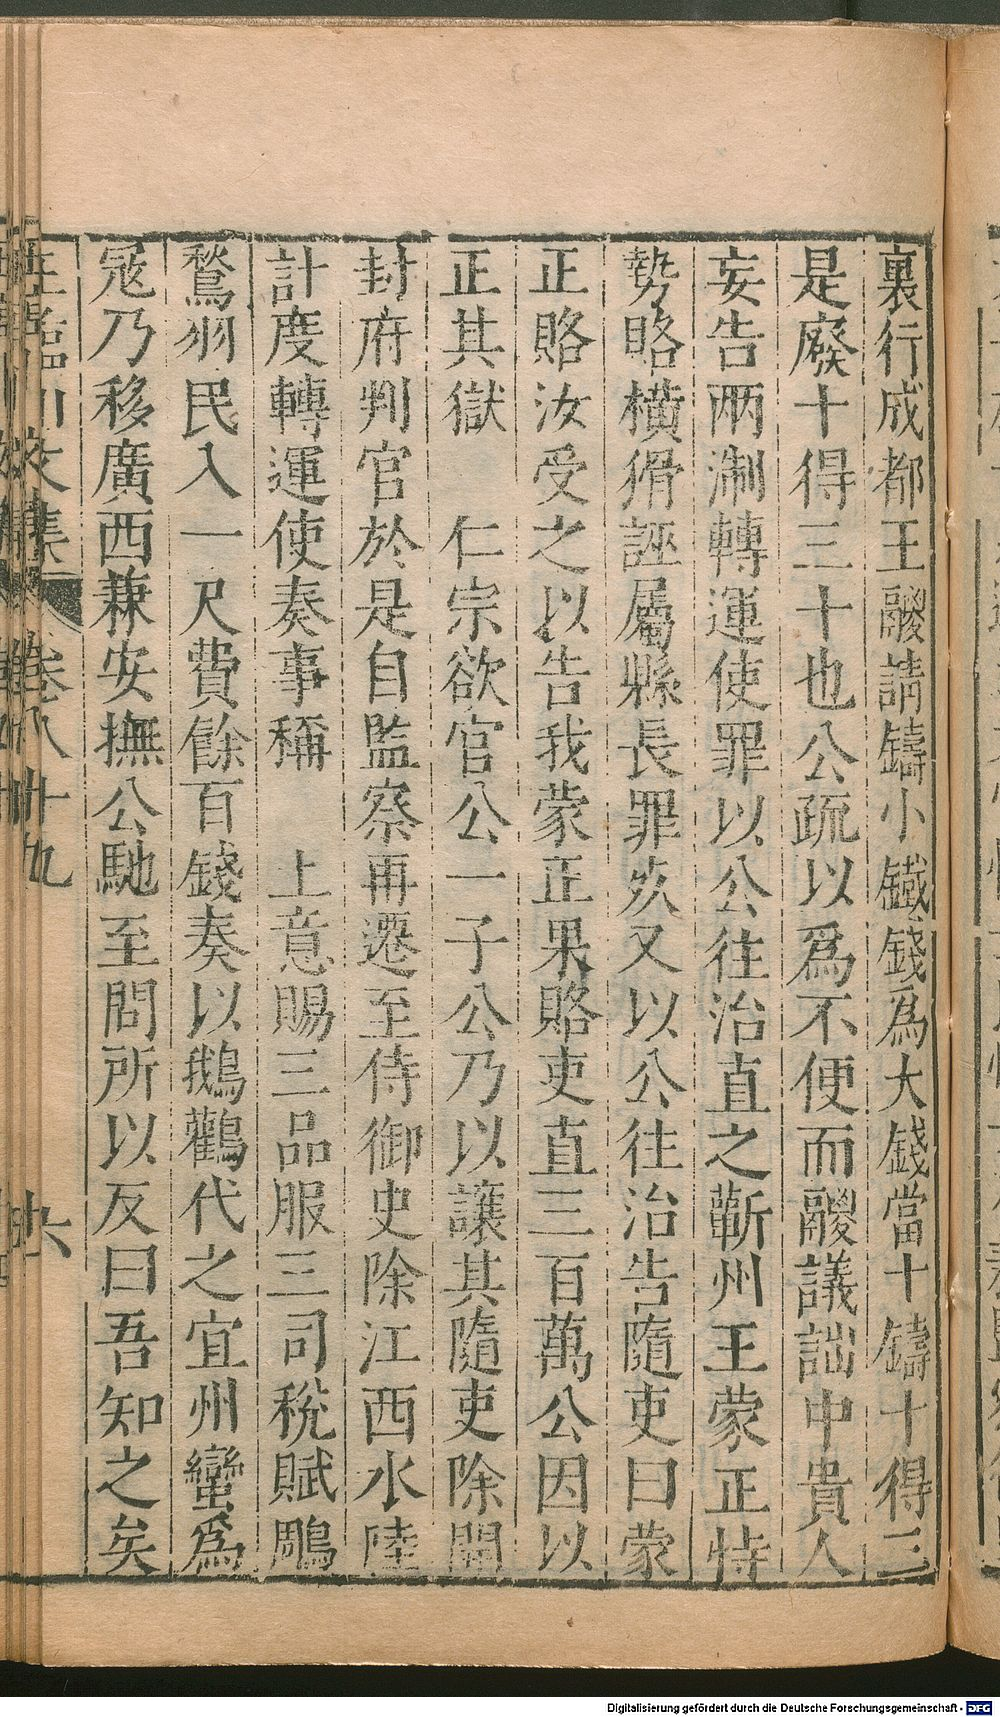 裏行成都王騣請鑄小鐵錢爲大錢當十鑄十得三
是廢十得三十也公疏以爲不便而騣議詘中貴人
妄告兩淛轉運使罪以公往治直之蘄州王蒙正恃
勢賂橫猾誣屬縣長罪死又以公往治告隨吏曰蒙
正賂汝受之以告我蒙正果賂吏直三百萬公因以
正其獄　仁宗欲官公一子公乃以讓其隨吏除開
封府判官於是自監察再遷至侍御史除江西水陸
計度轉運使奏事稱　上意賜三品服三司稅賦鵰
鶖羽民入一尺費餘百錢奏以鵝鸛代之宜州蠻爲
宼乃移廣西兼安撫公馳至問所以反曰吾知之矣
王臨川文集　卷八十九　六
Digitalisierung gefördert durch die Deutsche Forschungsgemeinschaft - DFG